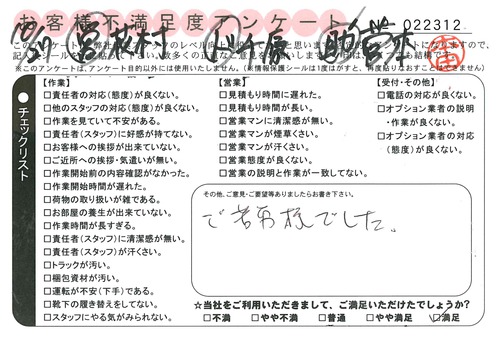 お客様不満足度アンケート
No 022312
【作業】
□責任者の対応(態度)が良くない。
□他のスタッフの対応(態度)が良くない。
□作業を見ていて不安がある。
□責任者(スタッフ)に好感が持てない。
□お客様への挨拶が出来ていない。
□ご近所への挨拶・気遣いが無い。
□作業開始前の内容確認がなかった。
□作業開始時間が遅れた。
□荷物の取り扱いが雑である。
□お部屋の養生が出来ていない。
□作業時間が長すぎる。
□責任者(スタッフ)に清潔感が無い。
□責任者(スタッフ)が汗くさい。
□トラックが汚い。
□梱包資材が汚い。
□運転が不安(下手)である。
□靴下の履き替えをしてない。
□スタッフにやる気がみられない。
【営業】
□見積もり時間に遅れた。
□見積もり時間が長い。
□営業マンに清潔感が無い。
□営業マンが煙草くさい。
□営業マンが汗くさい。
□営業態度が良くない。
□営業の説明と作業が一致してない。
【受付・その他】
□電話の対応が良くない。
□オプション業者の説明
・作業が良くない。
□オプション業者の対応
(態度)が良くない。
●チェックリスト
その他、ご意見・ご要望等ありましたらお書き下さい。
でした。
☆当社をご利用いただきまして、ご満足いただけたでしょうか?
□不満 □やや不満 □普通 □やや満足 □満足